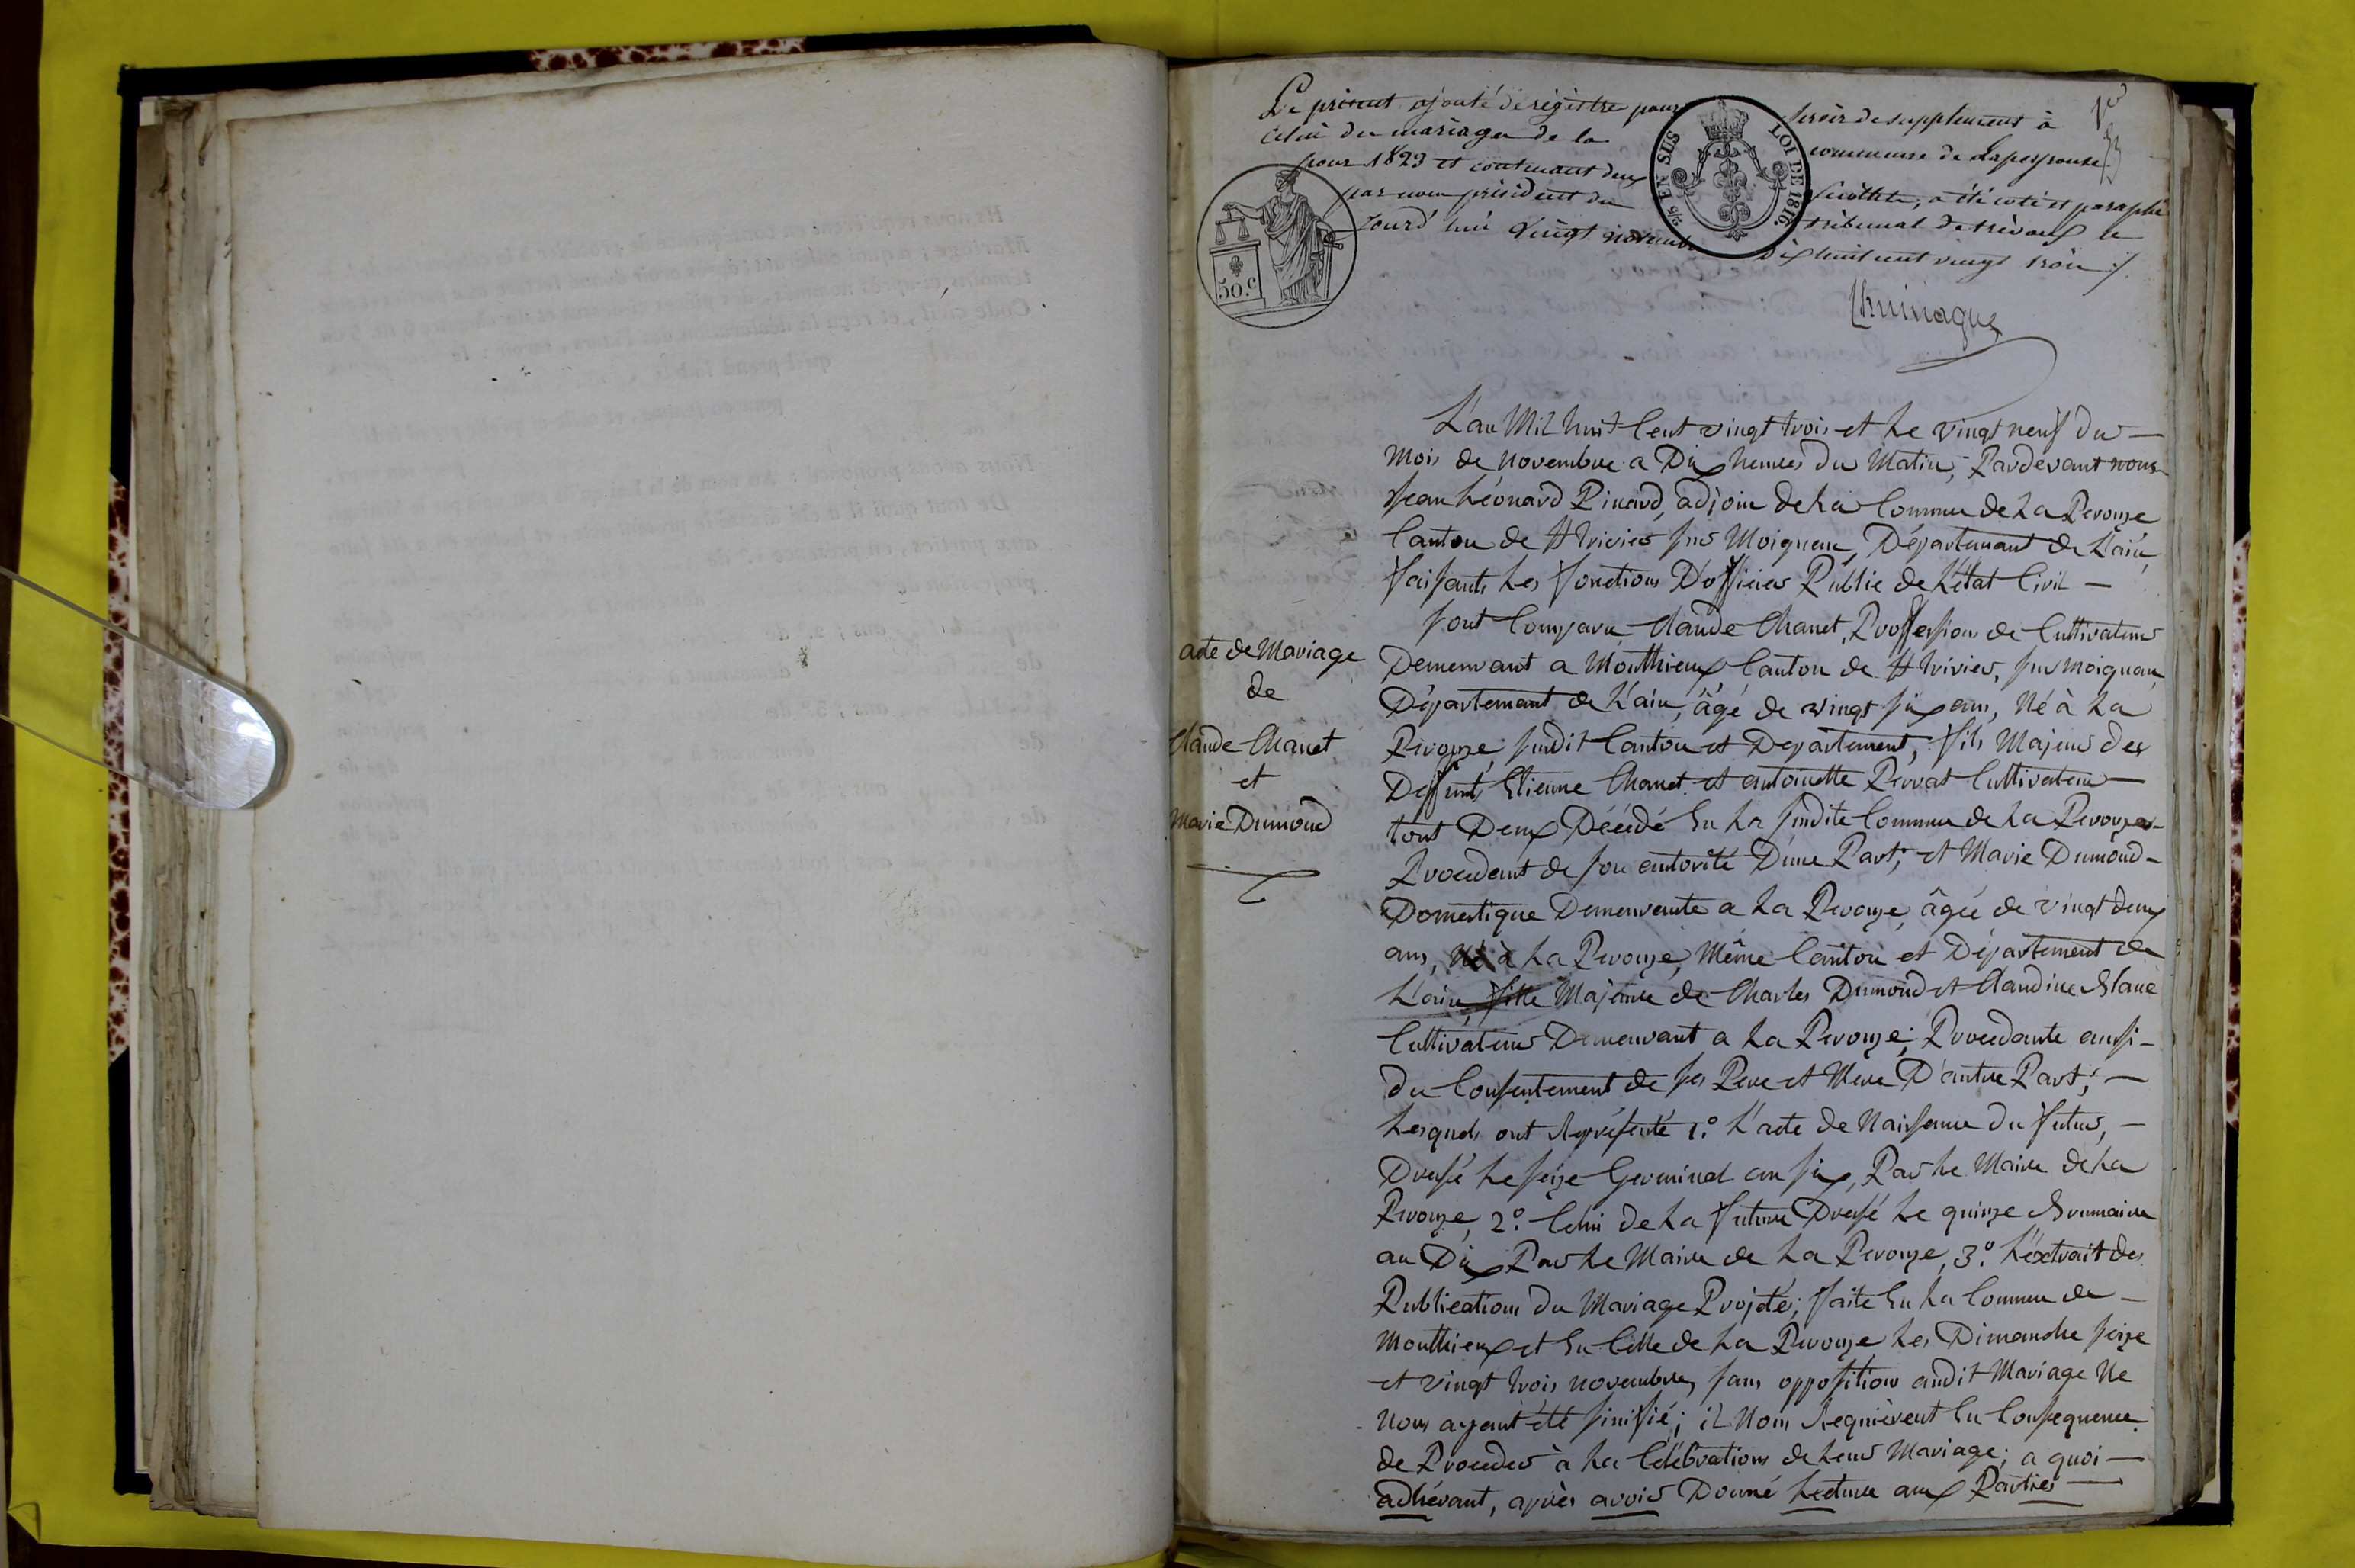 Le présent ajouté de régistre pour servir de supplément à
celui des mariages de la commune de Lapeyrouse
pour 1823 et contenant deux feuillets, a été coté et paraphé
par nous président du tribunal de trévoux le
jourd'hui vingt novembre dix huit cent vingt trois ./.
EN SUS
LOI DE 1816.
50.c
L'an Mil huit Cent vingt trois et Le vingt neuf du —
mois de novembre a Dix heures du Matin, Pardevant nous
Jean Léonard Pinard, adjoin de La Commune de La Perouze
Canton de St trivier sur Moignans, Département de L'ain,
faisants Les fonctions D'officier Public de L'état Civil —
Sont Comparu Claude Chanet, Proffession de Cultivateur
Demeurant a Monthieux Canton de St trivier, sur moignans
Département de L'ain, âgé de vingt six ans, Né à La
Perouze, sudit Canton et Departement, fils Majeur des
Deffunts Etienne Chanet et antoinette Pervat Cultivateur —
tout Deux Décédé En La sudite Commune de La Perouze —
Procedant de son autorité D'une Part; et Marie Dumond —
Domestique Demeurante a La Perouze, âgée de vingt deux
ans, Né à La Perouze, Même Canton et Département de
L'ain, fille Majeure de Charles Dumond et Claudine Blanc
Cultivateurs Demeurant a La Perouze; Procedante aussi —
du Consentement de ses Pere et Mere D'autre Part; —
Lesquels ont Représenté 1.° L'acte de Naissance Du futur, —
Dressé Le seize Germinal an six, Par Le Maire de La
Perouze, 2.° Celui de La future Dressé Le quinze Brumaire
an Dix Par Le Maire de La Perouze, 3.° L'éxtrait des
Publications du Mariage Projeté; faite En La Commune de —
Monthieux et En Celle de La Perouze Les Dimanche seize
et vingt trois novembre, sans opposition audit Mariage Ne
Nous ayant été sinifié; il Nous Requièrent En Conséquence
de Proceder à La Célébrations de Leur Mariage; a quoi —
adhérant, après avoir Donné Lecture aux Parties —
acte de Mariage
de
Claude Chanet
et
Marie Dumond